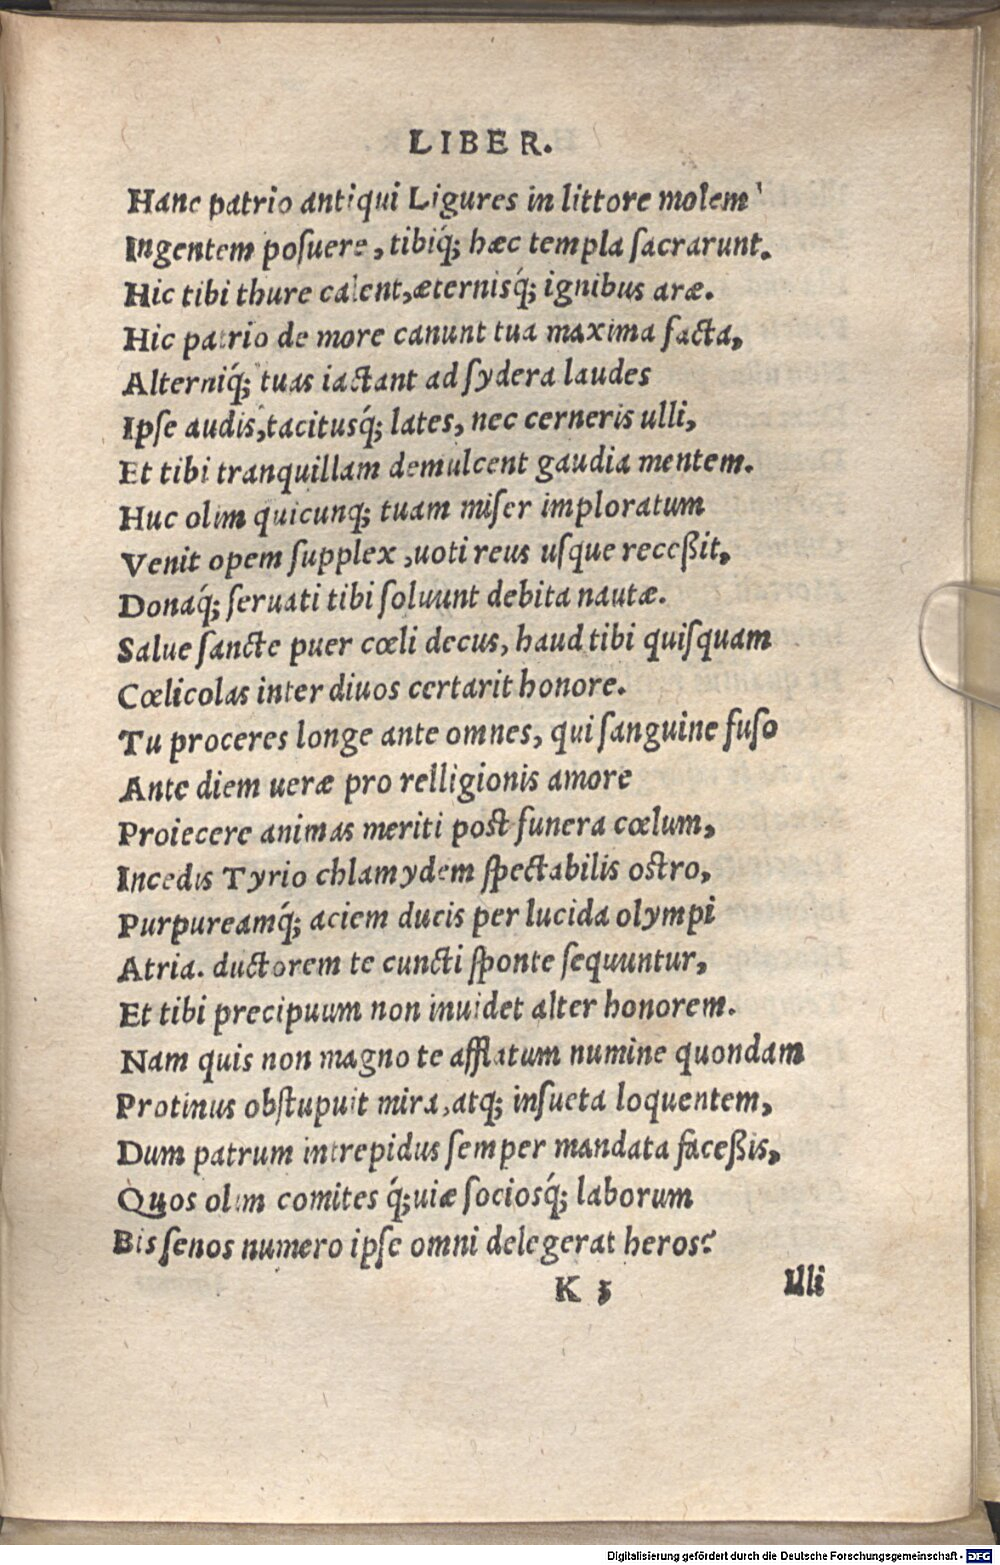 LIBER.
Hanc patrio antiqui Ligures in littore molem
Ingentem poſuere, tibiq́; hæc templa ſacrarunt.
Hic tibi thure calent, æternisq́; ignibus aræ.
Hic patrio de more canunt tua maxima facta,
Alterniq́; tuas iactant ad ſydera laudes
Ipſe audis, tacitusq́; lates, nec cerneris ulli,
Et tibi tranquillam demulcent gaudia mentem.
Huc olim quicunq; tuam miſer imploratum
Venit opem ſupplex, uoti reus uſque receßit,
Donaq́; ſeruati tibi ſoluunt debita nautæ.
Salue ſancte puer cœli decus, haud tibi quiſquam
Cœlicolas inter diuos certarit honore.
Tu proceres longe ante omnes, qui ſanguine fuſo
Ante diem ueræ pro relligionis amore
Proiecere animas meriti post funera cœlum,
Incedis Tyrio chlamydem ſpectabilis ostro,
Purpureamq́; aciem ducis per lucida olympi
Atria. ductorem te cuncti ſponte ſequuntur,
Et tibi precipuum non inuidet alter honorem.
Nam quis non magno te afflatum numine quondam
Protinus obſtupuit mira, atq; inſueta loquentem,
Dum patrum intrepidus ſemper mandata faceßis,
Quos olim comites q́; uiæ ſociosq́; laborum
Bis ſenos numero ipſe omni delegerat heros?
K 3 Illi
Digitalisierung gefördert durch die Deutsche Forschungsgemeinschaft - DFG